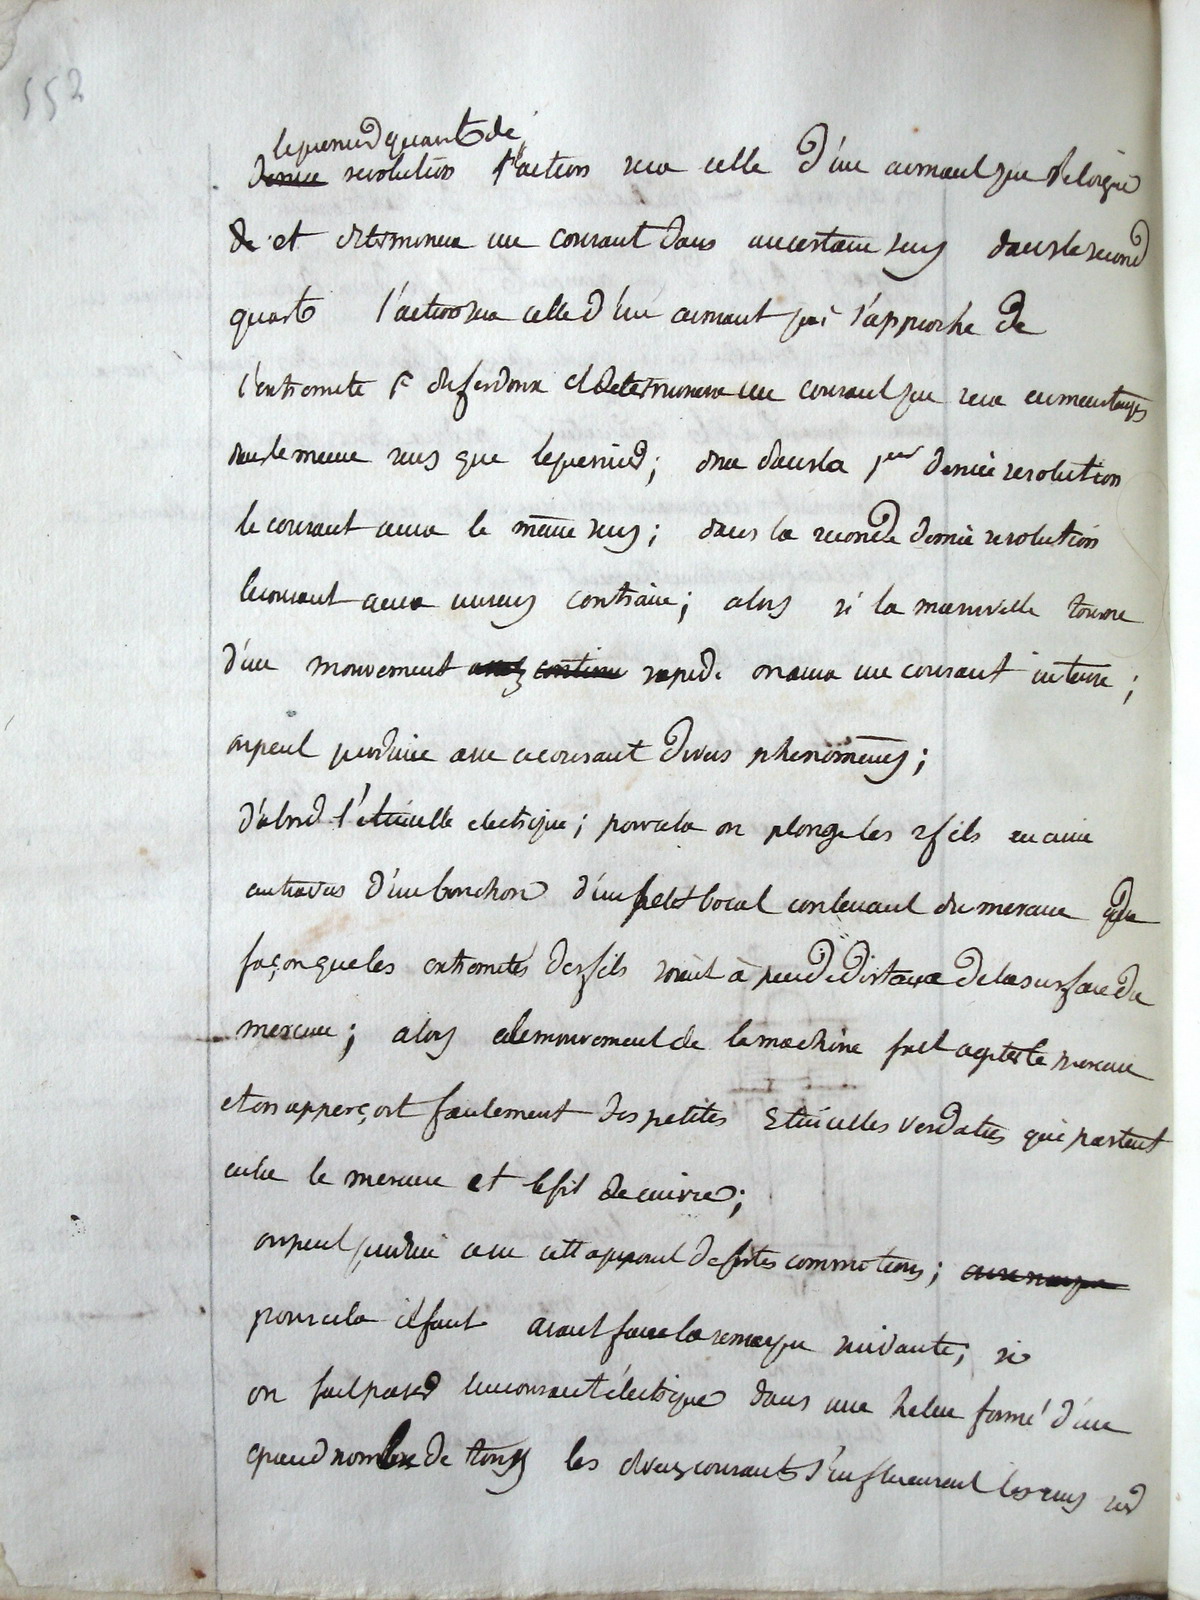 552
le premier quart de
demie revolution l'action sera celle d'un aimant qui s'eloigne
de et determinera un courant dans un certain sens dans le second
quart l'action sera celle d'un aimant qui s'approche de
l'extremite F du fer doux et determinera un courant qui sera
dans le meme sens que le premier; donc dans la 1ere demie revolution
le courant aura le même sens; dans la seconde demie revolution
le courant aura un sens contraire; alors si la manivelle tourne
d'un mouvement assez continu rapide on aura un courant intense;
on peut produire avec ce courant divers phenomènes;
d'abord l'étincelle electrique; pour cela on plonge les 2 fils en cuivre
au travers d'un bouchon d'un petit bocal contenant du mercure de
façon que les extremités des fils soient à peu de distance de la surface du
mercure; alors le mouvement de la machine fait agiter le mercure
et on apperçoit facilement des petites etincelles verdatres qui partent
entre le mercure et le fil de cuivre;
on peut produire avec cet appareil de fortes commotions;
pour cela il faut avant faire la remarque suivante; si
on fait passer un courant électrique dans une helice formé d'un
grand nombre de tours les divers courants s'influencent les uns sur